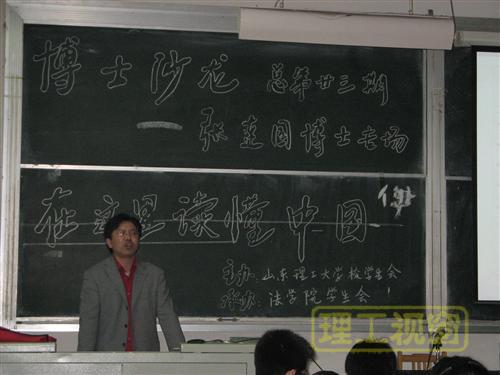 博士沙龙 总第廿三期
— 张建国博士专场
在这里读懂中国
主办:山东理工大学校学生会
承办:法学院学生会
理工视窗